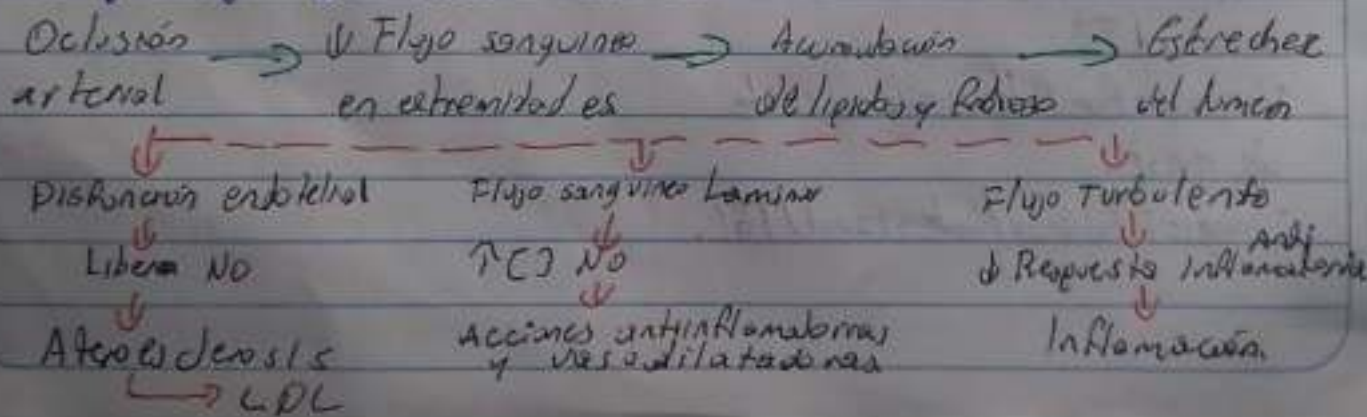 Oclusión arterial → ↓ Flujo sanguineo en extremidades → Acumulación de lipidos y → Estrechez del lumen
Disfunción endotelial
Libera NO
Ateroesclerosis
→ LDL
Flujo sanguineo Laminar
↑[] NO
Acciones antiinflamatorias
y vasodilatadoras
Flujo Turbulento
↓ Respuesta Anti Inflamatoria
Inflamación